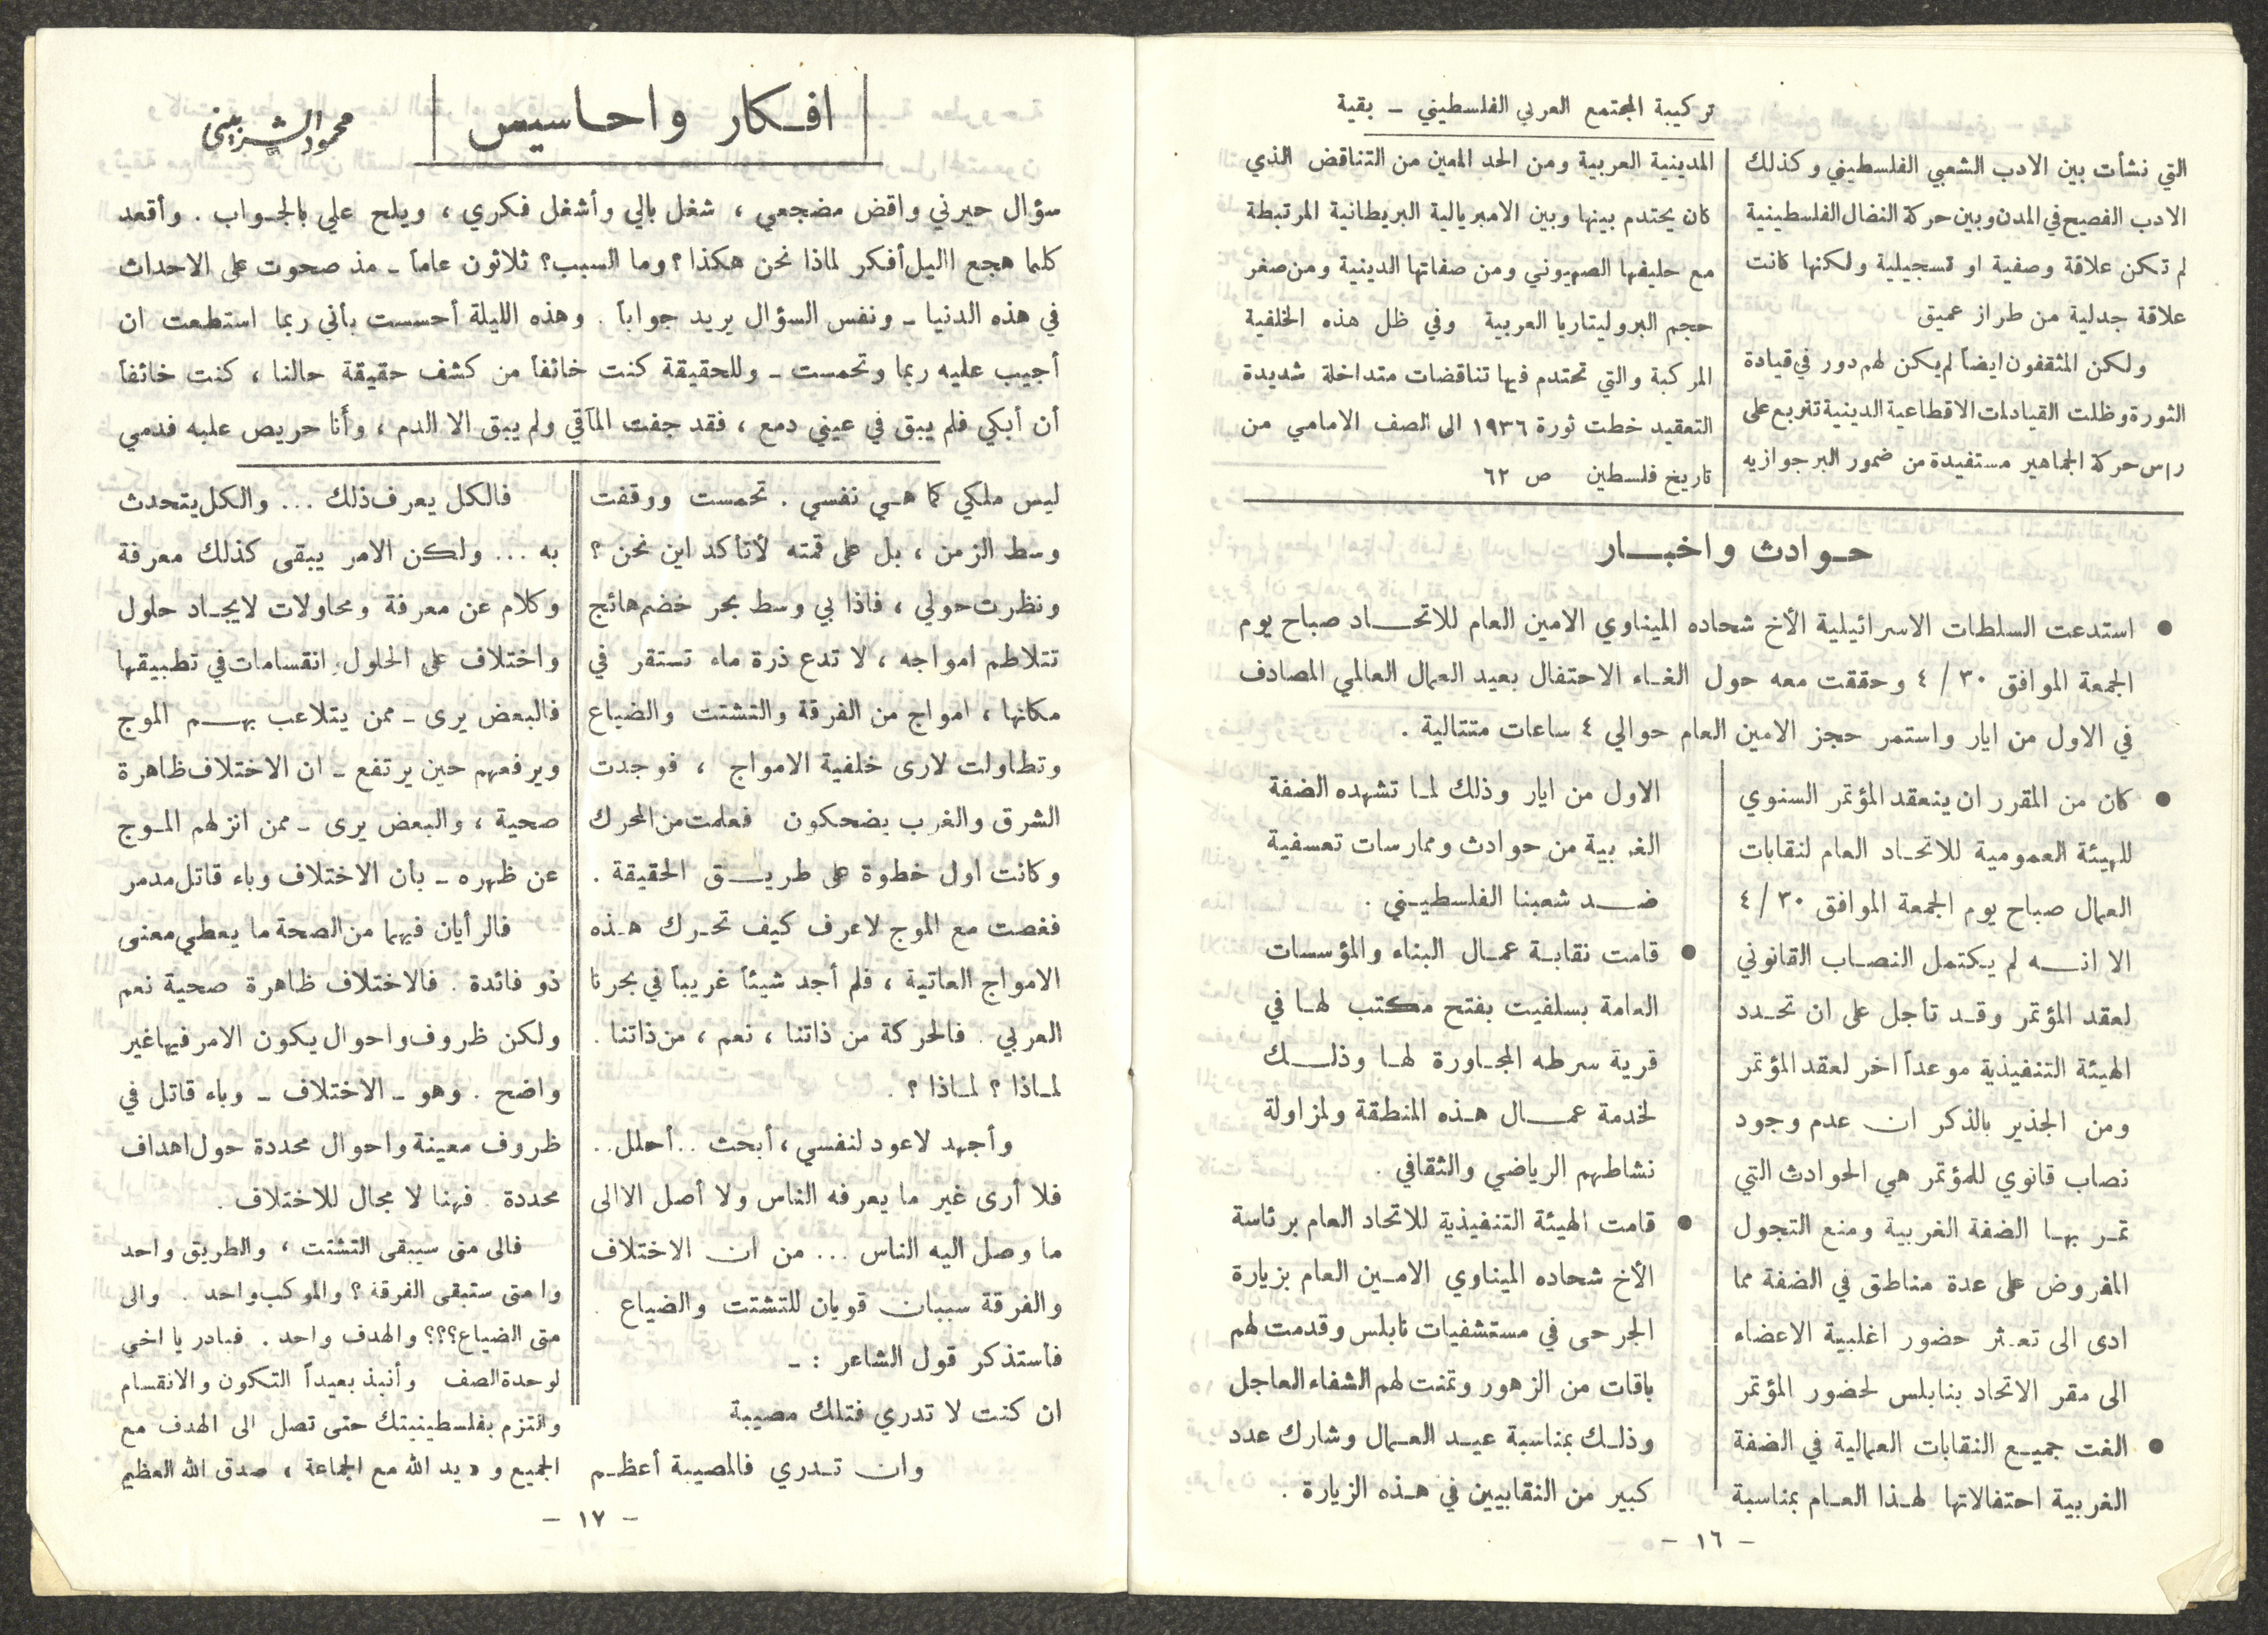 تركيبة المجتمع العربي الفلسطيني – بقية
التي نشأت بين الادب الشعبي الفلسطيني وكذلك
الادب الفصيح في المدن وبين حركة النضال الفلسطينية
لم تكن علاقة وصفية او تسجيلية ولكنها كانت
علاقة جدلية من طراز عميق
ولكن المثقفون ايضاً لم يكن لهم دور في قيادة
الثورة وظلت القيادات الاقطاعية الدينية تتربع على
راس حركة الجماهير مستفيدة من ضمور البرجوازيه
المدينية العربية ومن الحد المعين من التناقض الذي
كان يحتدم بينها وبين الامبريالية البريطانية المرتبطة
مع حليفها الصهيوني ومن صفاتها الدينية ومن صغر
حجم البروليتاريا العربية وفي ظل هذه الخلفية
المركبة والتي تحتدم فيها تناقضات متداخلة شديدة
التعقيد خطت ثورة ١٩٣٦ الى الصف الامامي من
تاريخ فلسطين ص ٦٢
حوادث واخبار
• استدعت السلطات الاسرائيلية الأخ شحاده الميناوي الامين العام للاتحاد صباح يوم
الجمعة الموافق ٣٠ / ٤ وحققت معه حول الغاء الاحتفال بعيد العمال العالمي المصادف
في الاول من ايار واستمر حجز الامين العام حوالي ٤ ساعات متتالية .
• كان من المقرر ان ينعقد المؤتمر السنوي
للهيئة العمومية للاتحاد العام لنقابات
العمال صباح يوم الجمعة الموافق ٣٠ / ٤
الا انه لم يكتمل النصاب القانوني
لعقد المؤتمر وقد تأجل على ان تحدد
الهيئة التنفيذية موعداً اخر لعقد المؤتمر
ومن الجذير بالذكر ان عدم وجود
نصاب قانوي للمؤتمر هي الحوادث التي
تمر بها الضفة الغربية ومنع التجول
المفروض على عدة مناطق في الضفة مما
ادى الى تعثر حضور اغلبية الاعضاء
الى مقر الاتحاد بنابلس لحضور المؤتمر
• الغت جميع النقابات العمالية في الضفة
الغربية احتفالاتها لهذا العام بمناسبة
الاول من ايار وذلك لما تشهده الضفة
الغربية من حوادث وممارسات تعسفية
ضد شعبنا الفلسطيني .
• قامت نقابة عمال البناء والمؤسسات
العامة بسلفيت بفتح مكتب لها في
قرية سرطه المجاورة لها وذلك
لخدمة عمال هذه المنطقة ولمزاولة
نشاطهم الرياضي والثقافي .
• قامت الهيئة التنفيذية للاتحاد العام برئاسة
الأخ شحاده الميناوي الامين العام بزيارة
الجرحى في مستشفيات نابلس وقدمت لهم
باقات من الزهور وتمنت لهم الشفاء العاجل
وذلك بمناسبة عيد العمال وشارك عدد
كبير من النقابيين في هذه الزيارة .
– ١٦ –
افكار واحاسيس
محمود الشربيني
سؤال حيرني واقض مضجعي ، شغل بالي وأشغل فكري ، ويلح علي بالجواب . وأقعد
كلما هجع اليل أفكر لماذا نحن هكذا ؟ وما السبب ؟ ثلاثون عاماً – مذ صحوت على الاحداث
في هذه الدنيا – ونفس السؤال يريد جواباً . وهذه الليلة أحسست بأني ربما استطعت ان
أجيب عليه ربما وتحمست – وللحقيقة كنت خائفاً من كشف حقيقة حالنا ، كنت خائفاً
أن أبكي فلم يبق في عيني دمع ، فقد جفت المآقي ولم يبق الا الدم ، وأنا حريص عليه فدمي
ليس ملكي كما هي نفسي . تحمست ووقفت
وسط الزمن ، بل على قمته لأتأكد اين نحن ؟
ونظرت حولي ، فاذا بي وسط بحر خضم هائج
تتلاطم امواجه ، لا تدع ذرة ماء تستقر في
مكانها ، امواج من الفرقة والتشتت والضياع
وتطاولت لارى خلفية الامواج ، فوجدت
الشرق والغرب يضحكون فعلمت من المحرك
وكانت اول خطوة على طريق الحقيقة .
فغصت مع الموج لاعرف كيف تحرك هذه
الامواج العاتية ، فلم أجد شيئاً غريباً في بحرنا
العربي . فالحركة من ذاتنا ، نعم ، من ذاتنا .
لماذا ؟ لماذا ؟ .
وأجهد لاعود لنفسي ، أبحث .. أحلل ..
فلا أرى غير ما يعرفه الناس ولا أصل الا الى
ما وصل اليه الناس ... من ان الاختلاف
والفرقة سببان قويان للتشتت والضياع .
فأستذكر قول الشاعر : –
ان كنت لا تدري فتلك مصيبة
وان تدري فالمصيبة أعظم
فالكل يعرف ذلك ... والكل يتحدث
به ... ولكن الامر يبقى كذلك معرفة
وكلام عن معرفة ومحاولات لايجاد حلول
واختلاف على الحلول. انقسامات في تطبيقها
فالبعض يرى – ممن يتلاعب بهم الموج
ويرفعهم حين يرتفع – ان الاختلاف ظاهرة
صحية ، والبعض يرى – ممن انزلهم الموج
عن ظهره – بأن الاختلاف وباء قاتل مدمر
فالرأيان فيهما من الصحة ما يعطي معنى
ذو فائدة . فالاختلاف ظاهرة صحية نعم
ولكن ظروف واحوال يكون الامر فيها غير
واضح . وهو – الاختلاف – وباء قاتل في
ظروف معينة واحوال محددة حول اهداف
محددة . فهنا لا مجال للاختلاف .
فالى متى سيبقى التشتت ، والطريق واحد
وا متى ستبقى الفرقة ؟ والموكب واحد . والى
متى الضياع؟؟؟ والهدف واحد . فبادر يا اخي
لوحدة الصف وأنبذ بعيداً التكون والانقسام
والتزم بفلسطينيتك حتى تصل الى الهدف مع
الجميع و « يد الله مع الجماعة ، صدق الله العظيم
– ١٧ –